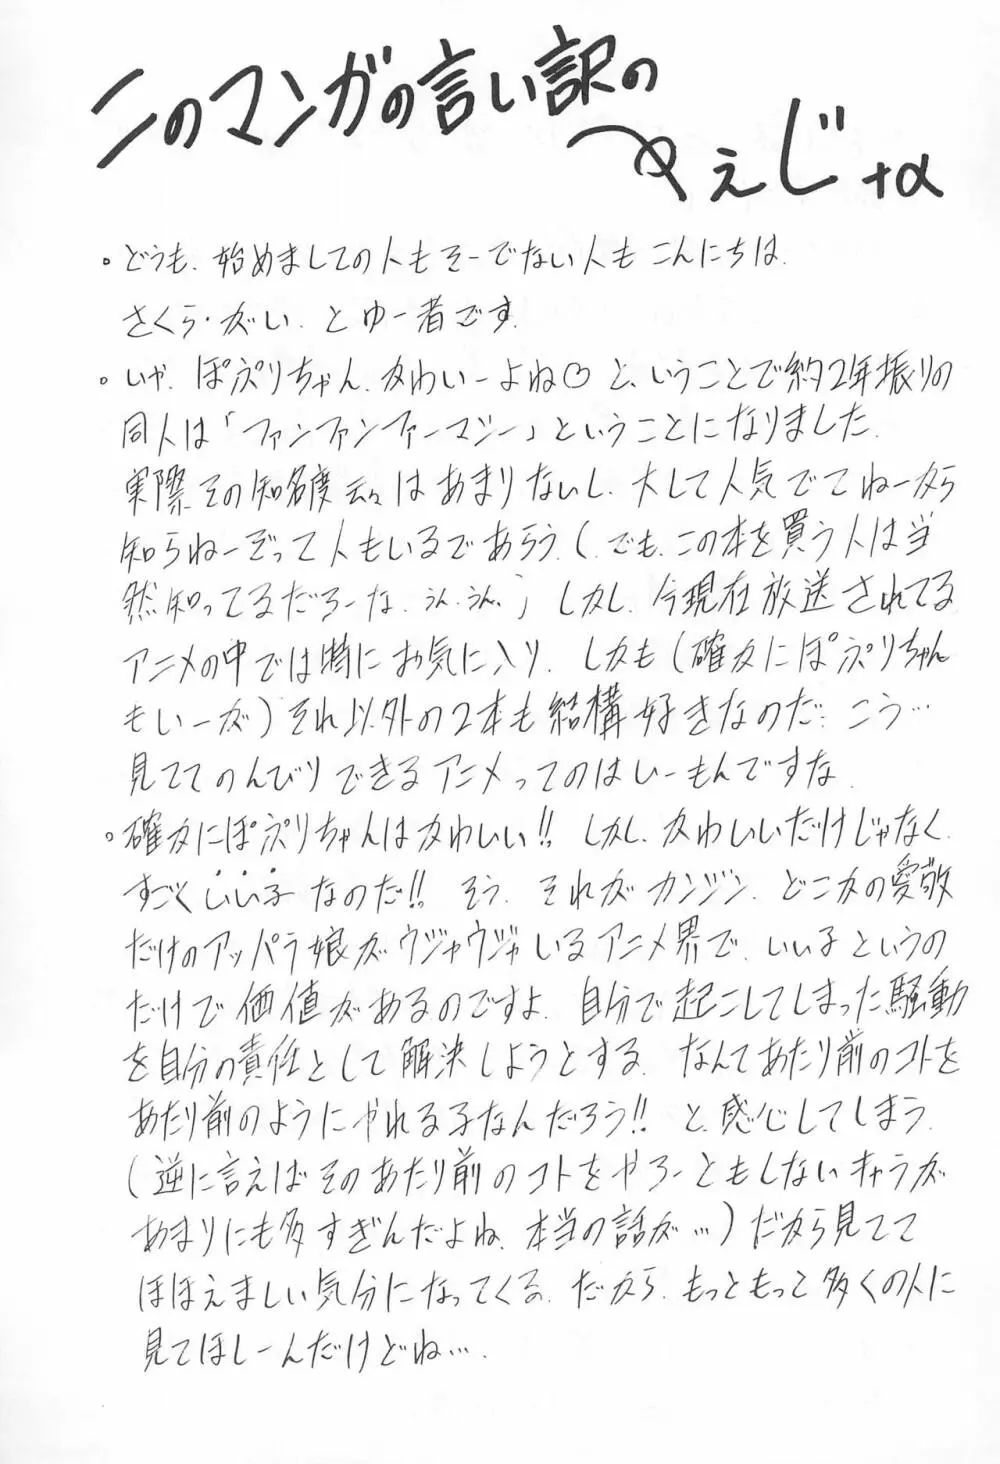 このマンガの言い訳の
ぺぇじ+α
・どうも、始めましての人もそーでない人もこんにちは、
さくら・がい、とゆー者です。
・いや、ぽぷりちゃん、かわいーよね♡と、いうことで約2年振りの
同人は「ファンファンファーマシー」ということになりました。
実際その知名度云々はあまりないし、大して人気でてねーから
知らねーぞって人もいるであろう、(でも、この本を買う人は当
然知ってるだろーな、うん、うん、)しかし、今現在放送されてる
アニメの中では特にお気に入り、しかも(確かにぽぷりちゃん
もいーが)それ以外の2本も結構好きなのだ、こう…
見ててのんびりできるアニメってのはいーもんですな。
・確かにぽぷりちゃんはかわいい!!しかし、かわいいだけじゃなく、
すごくいい子なのだ!!そう、それがカンジン、どこかの愛敬
だけのアッパラ娘がウジャウジャいるアニメ界で、いい子というの
だけで価値があるのですよ。自分で起こしてしまった騒動
を自分の責任として解決しようとする、なんてあたり前のコトを
あたり前のようにやれる子なんだろう!!と、感心してしまう。
(逆に言えばそのあたり前のコトをやろーともしないキャラが
あまりにも多すぎんだよね、本当の話が…)だから見てて
ほほえましい気分になってくる、だから、もっともっと多くの人に
見てほしーんだけどね…。